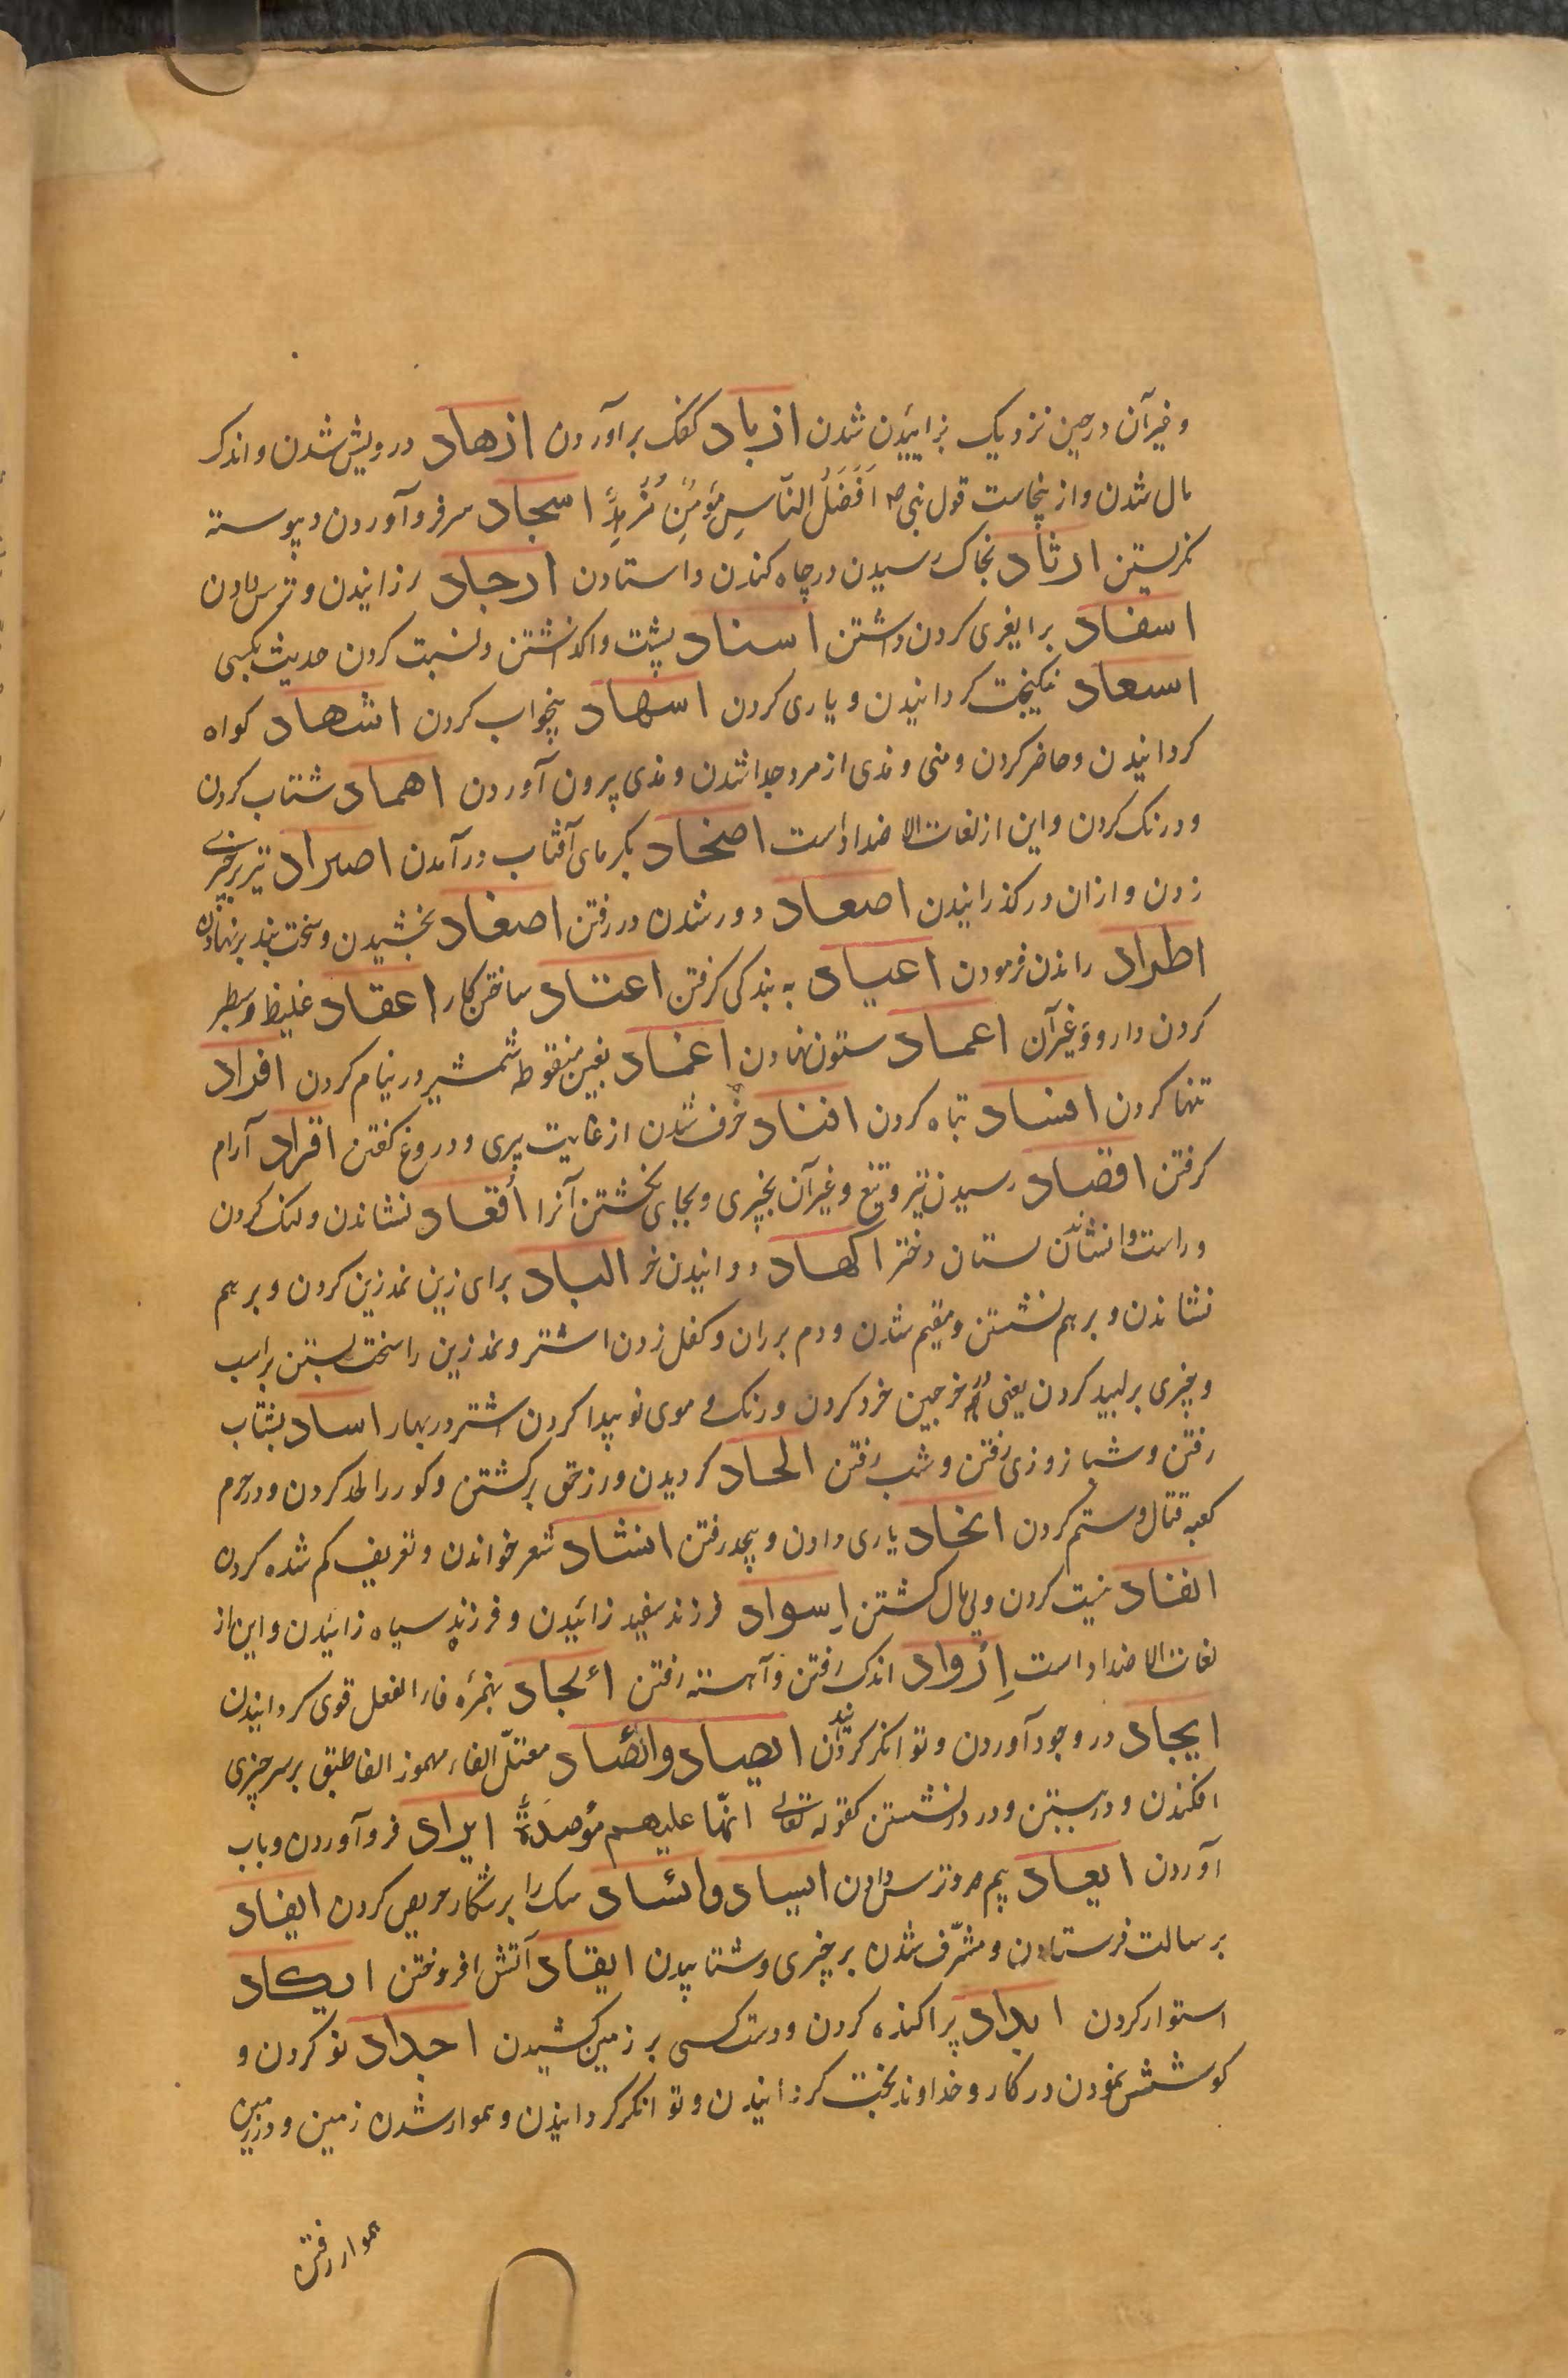 و غیر آن در حین نزدیک بزائیدن شدن ازباد کفک برآوردن ازهاد درویش شدن و اندک
مال شدن و از ینجاست قول نبی ص اَفْضَلُ النّاسِ مُؤمِنٌ مُزْهِدٌ اسجاد سر فرو آوردن و پیوسته
نکریستن ارثاد بخاک رسیدن در چاه کندن و استادن ارجاد لرزانیدن و ترس دادن
اسفاد برایغری کردن داشتن اسناد پشت واکذاشتن و نسبت کردن حدیث بکسی
اسعاد نیکبخت کردانیدن و یاری کردن اسهاد بیخواب کردن اشهاد کواه
کردانیدن و حاضر کردن و منی و مذی از مرد جدا شدن و مذی بیرون آوردن اهماد شتاب کردن
و درنک کردن و این از لغات الاضداد است اصخاد بکرمای آفتاب درآمدن اصراد تیر بر چیزی
زدن و از ان درکذرانیدن اصعاد دور شدن در رفتن اصفاد بخشیدن و سخت بند برنهادن
اطراد راندن فرمودن اعباد به بندکی کرفتن اعتاد ساختن کار اعقاد غلیظ و سطبر
کردن دارو و غیر آن اعماد ستون نهادن اغماد بغین منقوطه شمشیر در نیام کردن افراد
تنها کردن افساد تباه کردن افناد خرف شدن از غایت پیری و دروغ کفتن اقراد آرام
کرفتن اقصاد رسیدن تیر و تیغ و غیر آن بچیزی و بجای بکشتن آنرا اُقعاد نشاندن و لنک کردن
و راست وانشاندن پستان دختر اکهاد دوانیدن خر الباد برای زین نمد زین کردن و بر هم
نشاندن و بر هم نشستن و مقیم شدن و دم بر ران و کفل زدن اشتر و نمد زین را سخت بستن بر اسب
و چیزی بر لبید کردن یعنی خرجین خرد کردن و رنک و موی نو پیدا کردن اشتر در بهار اساد بشتاب
رفتن و شبا روزی رفتن و شب رفتن الحاد کردیدن و از حق برکشتن و کور را لحد کردن و در حرم
کعبه قتال و ستم کردن انجاد یاری دادن و بنجد رفتن انشاد شعر خواندن و تعریف کم شده کردن
انفاد نیست کردن و بی مال کشتن اِسواد فرزند سفید زائیدن و فرزند سیاه زائیدن و این از
لغات الاضداد است اِرْواد اندک رفتن و آهسته رفتن ائجاد بهمزه فاء الفعل قوی کردانیدن
ایجاد در وجود آوردن و توانکر کردانیدن ایصاد وائصاد معتلّ الفاء مهموز الفا طبق بر سر چیزی
افکندن و در بستن و در در نشستن کقوله تعالی انّها علیهم مؤصدة ایراد فرو آوردن و باب
آوردن ایعاد بیم و ترس دادن ایساد وائساد سک را بر شکار حریص کردن ایفاد
برسالت فرستادن و مشرّف شدن بر چیزی و شتابیدن ایقاد آتش افروختن ایکاد
استوار کردن ابداد پراکنده کردن و دست کسی بر زمین کشیدن اجداد نو کردن و
کوشش نمودن در کار و خداوند بخت کردانیدن و توانکر کردانیدن و هموار شدن زمین و در زمین
هموار رفتن